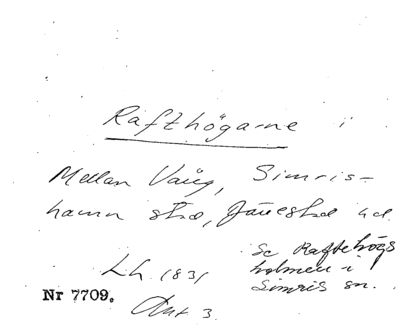 Rafthögarne i
Mellan Vång, Simris-
hamn stad, Järrestad hd.
Se Raftehögs
holmen i
Simris sn.
Lh. 1831
Nr 7709.
Akt 3